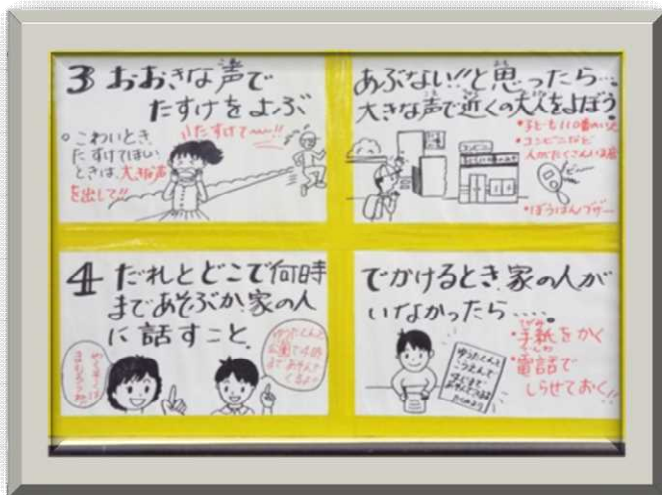 3 おおきな声で
たすけをよぶ
・こわいとき
たすけてほしい
ときは大きな声
を出して!!
たすけて〜!!
あぶない!!と思ったら…
大きな声で近くの大人をよぼう。
・子ども110番のいえ
・コンビニなど
人がたくさんいる店
コンビニ
・ぼうはんブザー
4 だれとどこで何時
まであそぶか、家の人
に話すこと。
やくそくは
まもろうね
ゆうたくんと
公園で4時
まであそんで
くるよ
でかけるとき家の人が
いなかったら……。
・手紙をかく
・電話で
しらせておく!!
ゆうたくんと
こうえんで
4じまで